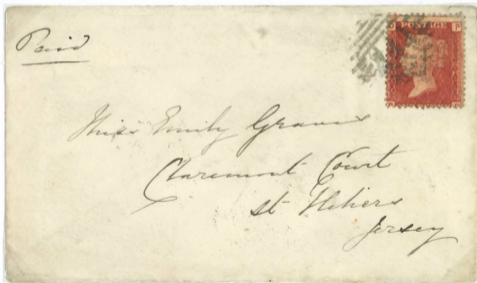 Paid
POSTAGE
Miss Emily Graves
Claremont Court
St Heliers
Jersey